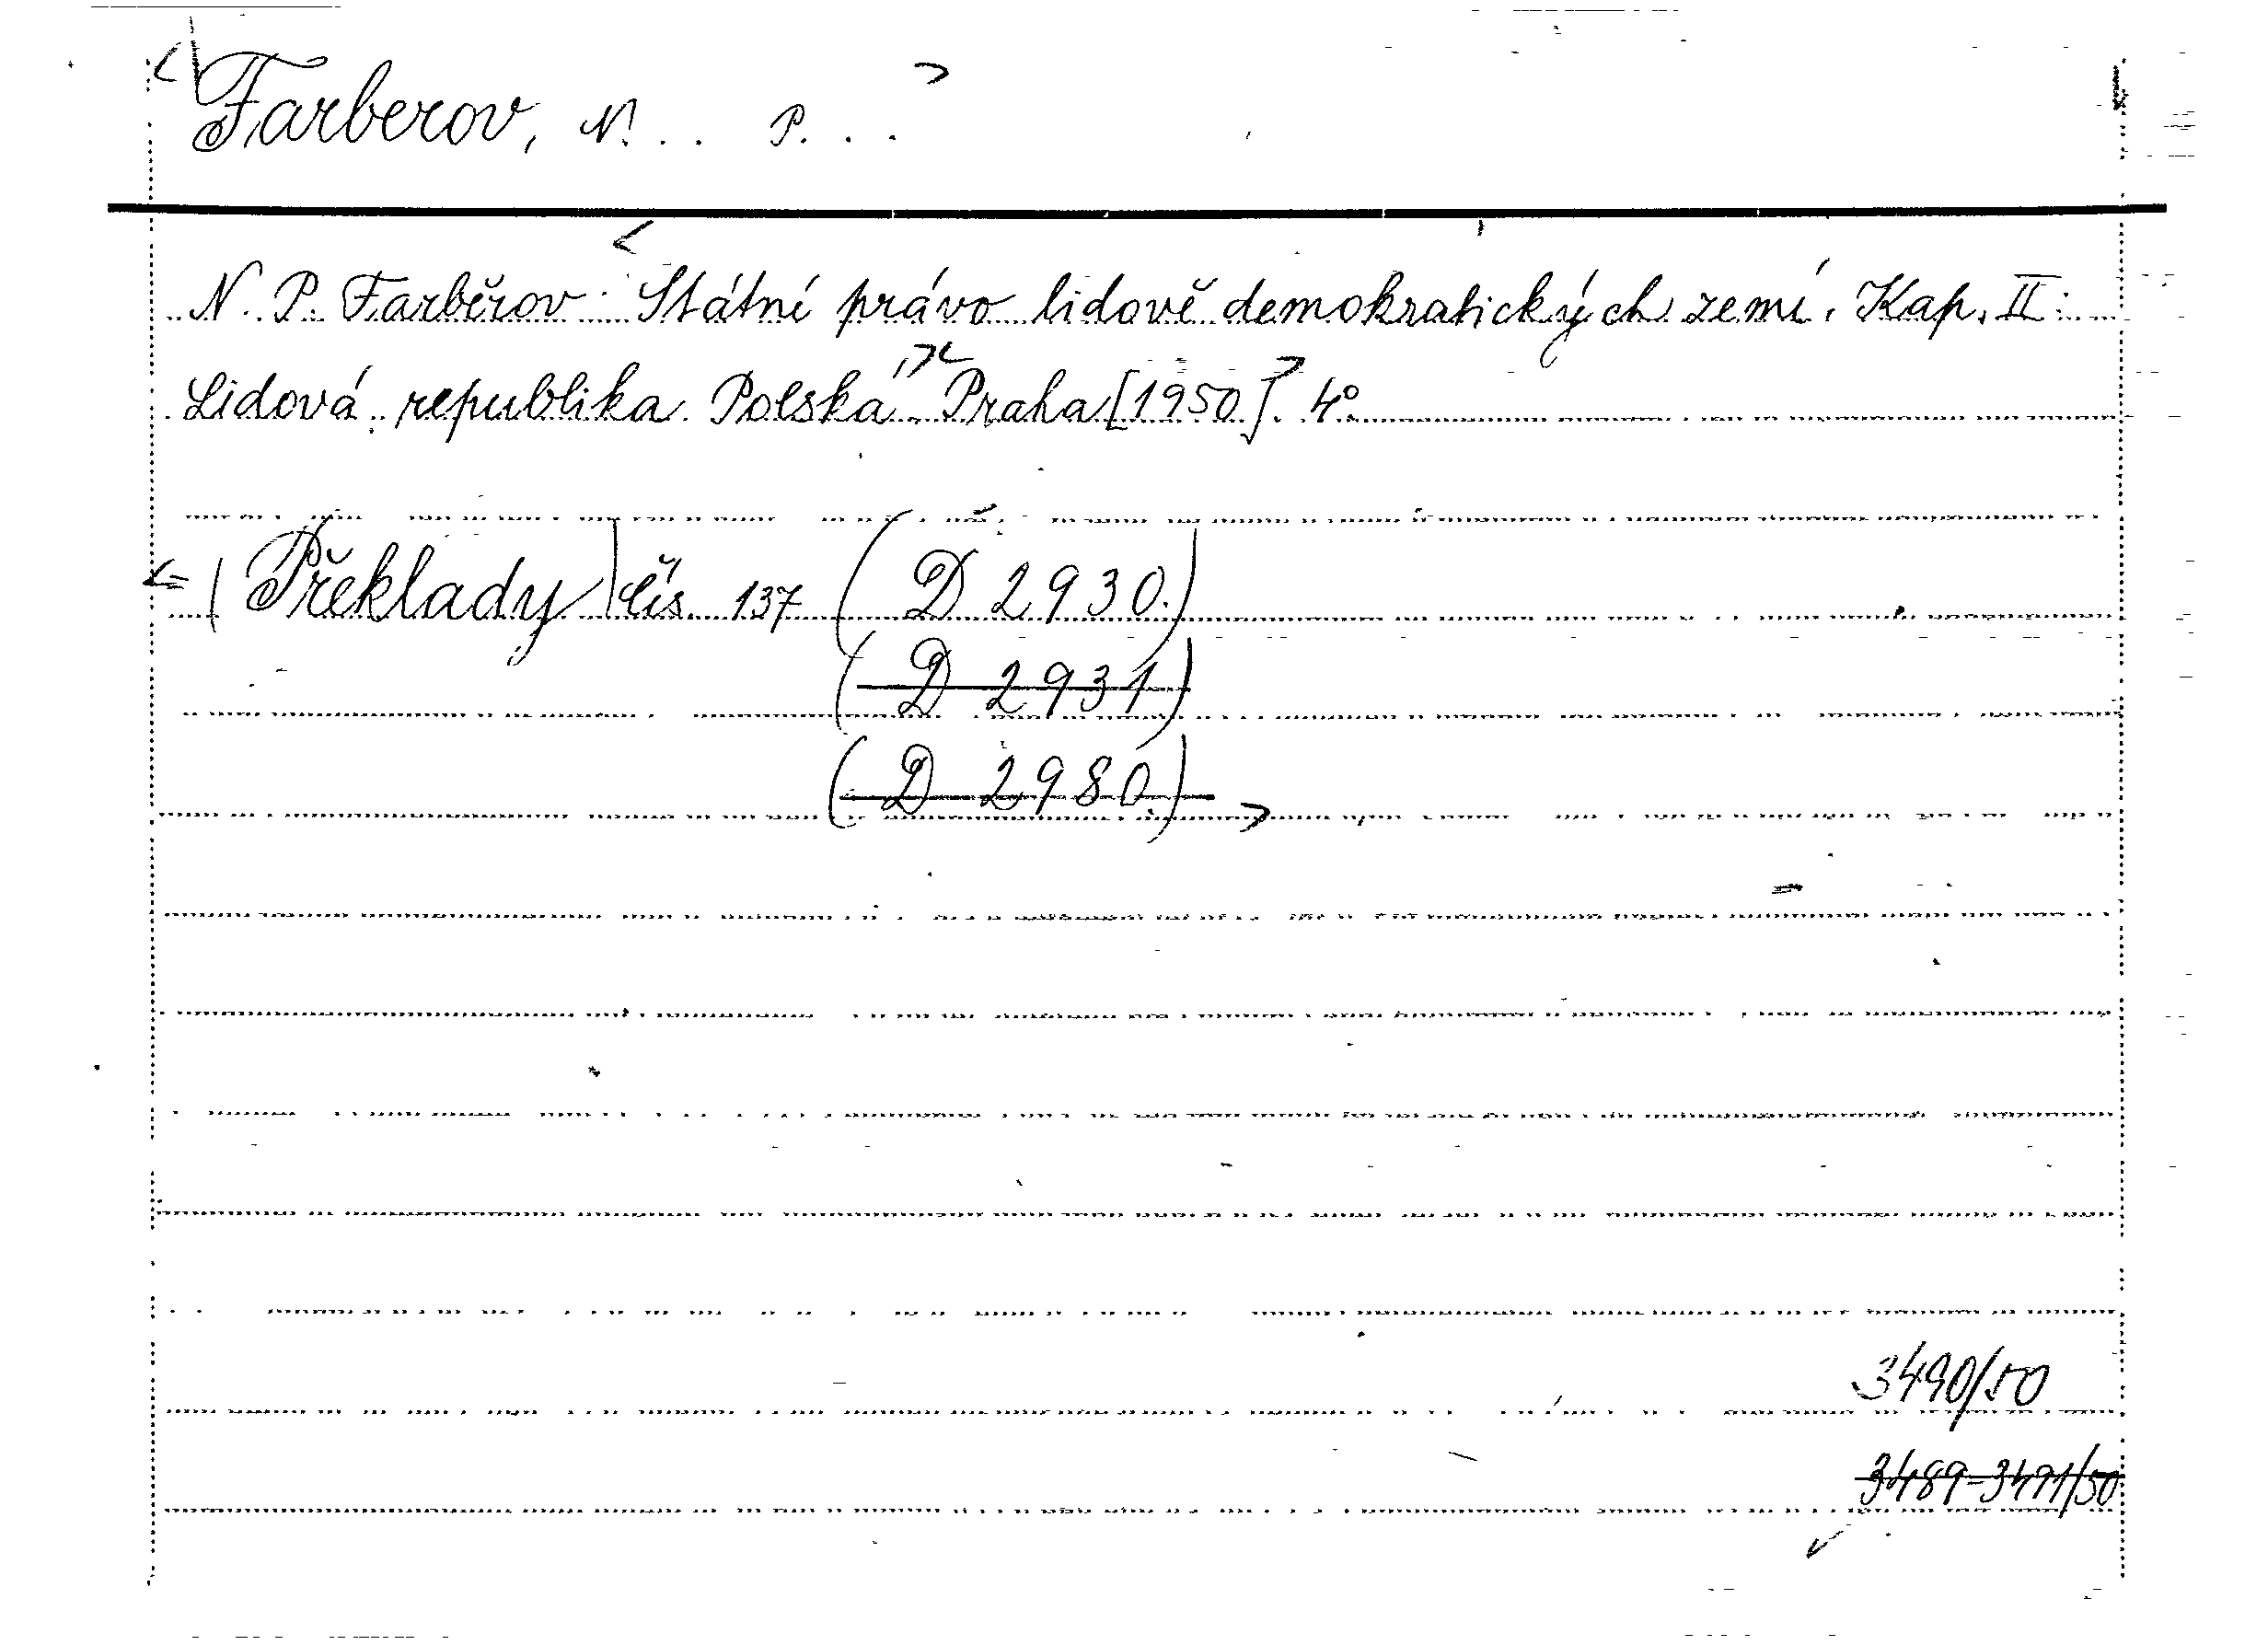 Farberov, N. . . P. . .
N. P. Farběrov: Státní právo lidově demokratických zemí. Kap. II:
Lidová republika Polská. Praha [1950]. 4°
(Překlady) čís. 137 (D 2930.)
(D 2931)
(D 2980.)
3490/50
3489-3491/50